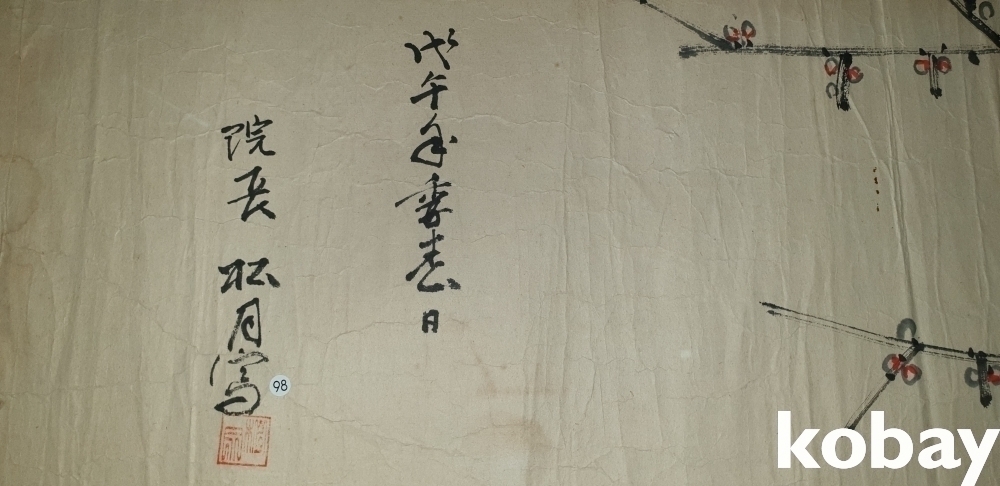 戊午年季春日
院長 松月寫
98
kobay